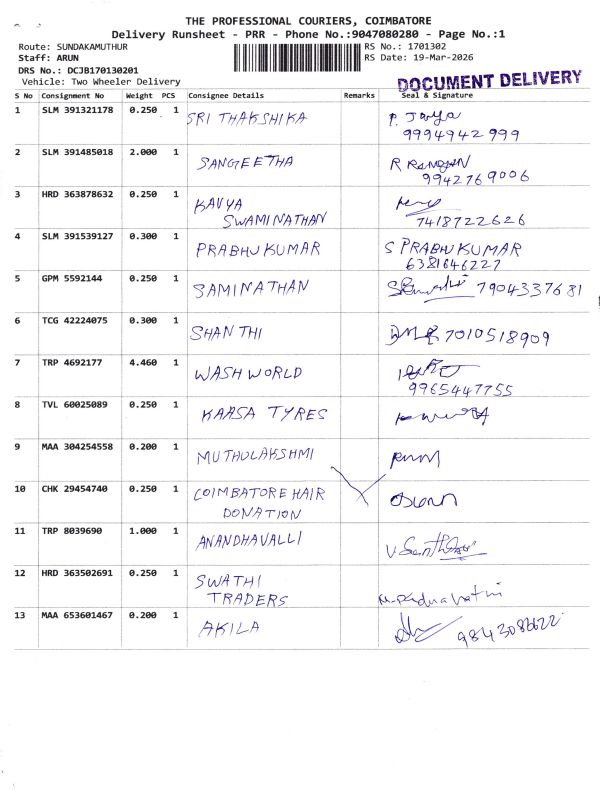 THE PROFESSIONAL COURIERS, COIMBATORE
Delivery Runsheet - PRR - Phone No.:9047080280 - Page No.:1
Route: SUNDAKAMUTHUR RS No.: 1701302
Staff: ARUN RS Date: 19-Mar-2026
DRS No.: DCJB170130201
Vehicle: Two Wheeler Delivery DOCUMENT DELIVERY
S No Consignment No Weight PCS Consignee Details Remarks Seal & Signature
1 SLM 391321178 0.250 1 SRI THAKSHIKA P. Jaya
9994942999
2 SLM 391485018 2.000 1 SANGEETHA R
9942769006
3 HRD 363878632 0.250 1 KAVYA
SWAMINATHAN 7418722626
4 SLM 391539127 0.300 1 PRABHU KUMAR S PRABHU KUMAR
6381646227
5 GPM 5592144 0.250 1 SAMINATHAN 7904337681
6 TCG 42224075 0.300 1 SHANTHI 7010518909
7 TRP 4692177 4.460 1 WASH WORLD
9965447755
8 TVL 60025089 0.250 1 KAASA TYRES
9 MAA 304254558 0.200 1 MUTHULAKSHMI
10 CHK 29454740 0.250 1 COIMBATORE HAIR
DONATION
11 TRP 8039690 1.000 1 ANANDHAVALLI
12 HRD 363502691 0.250 1 SWATHI
TRADERS
13 MAA 653601467 0.200 1 AKILA